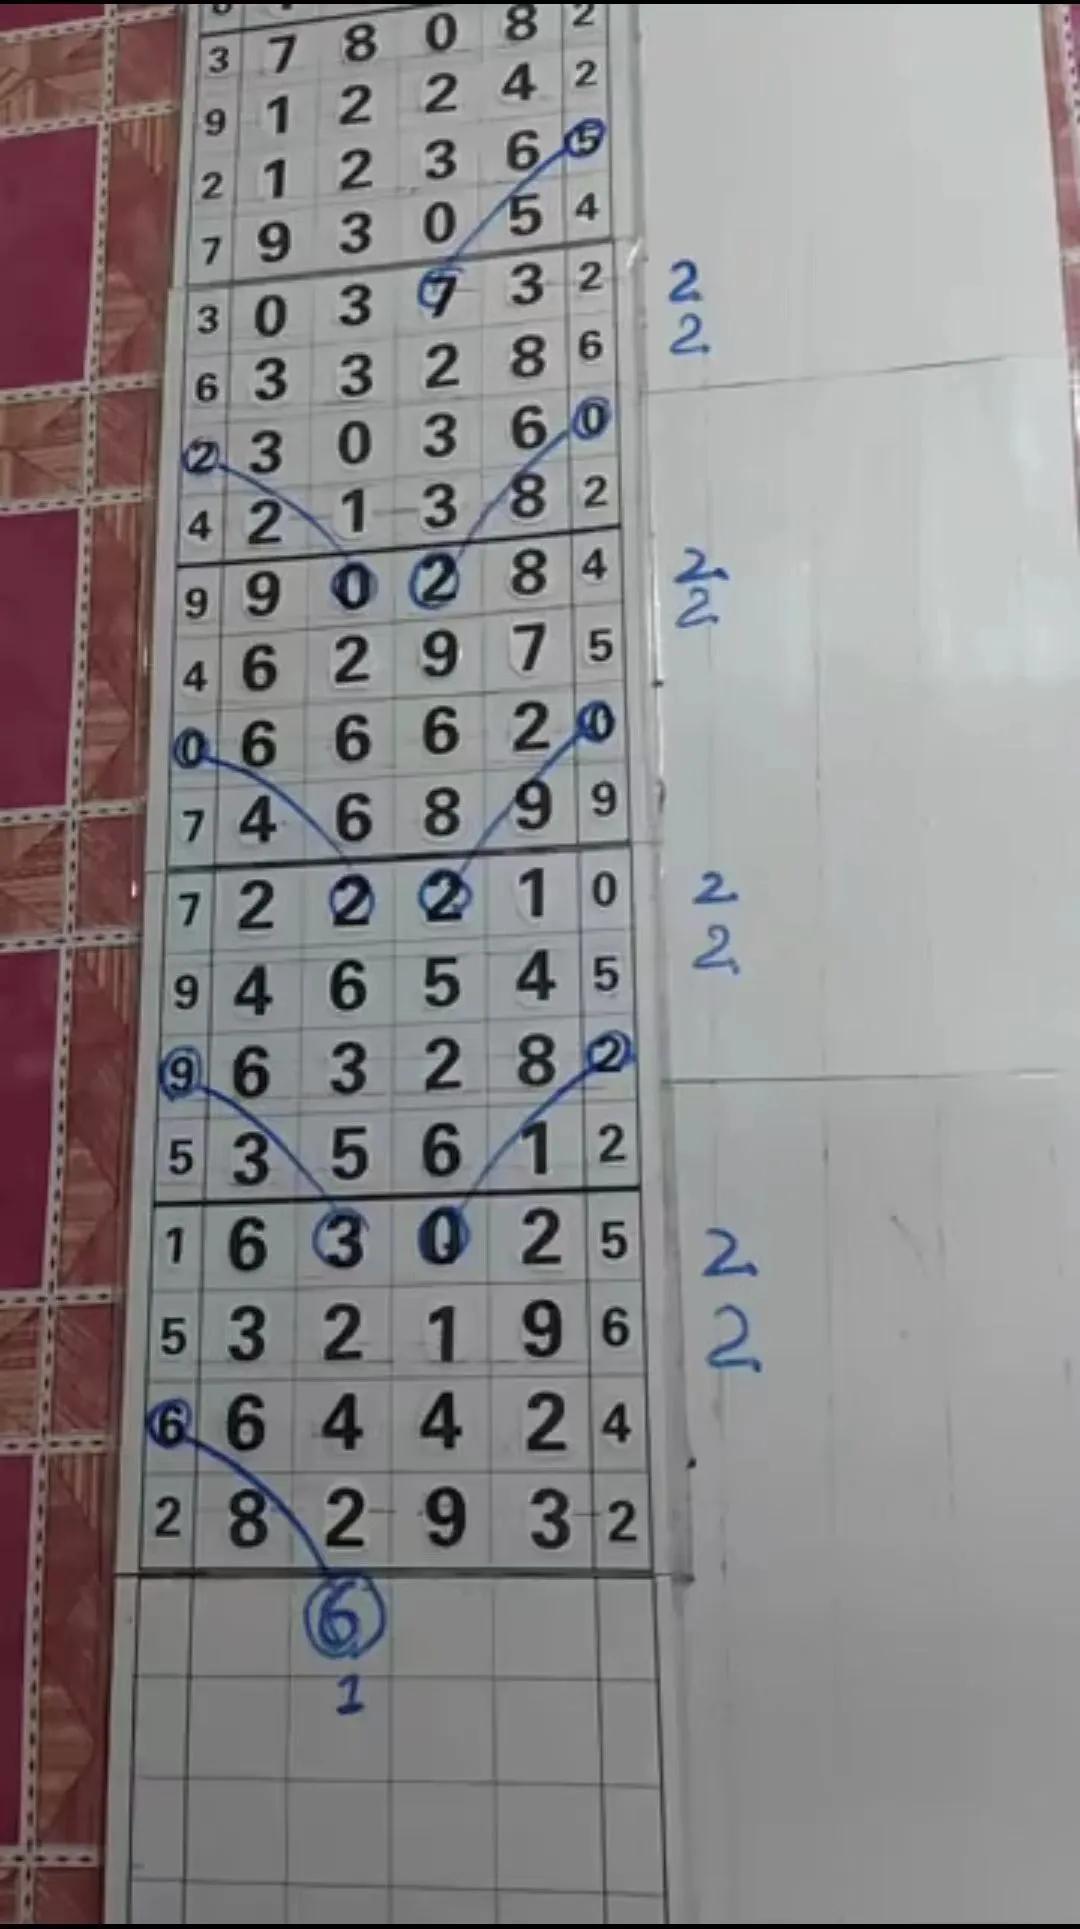 3 7 8 0 8 2
9 1 2 2 4 2
2 1 2 3 6 5
7 9 3 0 5 4
3 0 3 7 3 2 2
6 3 3 2 8 6 2
2 3 0 3 6 0
4 2 1 3 8 2
9 9 0 2 8 4 2
4 6 2 9 7 5 2
0 6 6 6 2 0
7 4 6 8 9 9
7 2 2 2 1 0 2
9 4 6 5 4 5 2
9 6 3 2 8 2
5 3 5 6 1 2
1 6 3 0 2 5 2
5 3 2 1 9 6 2
6 6 4 4 2 4
2 8 2 9 3 2
6
1